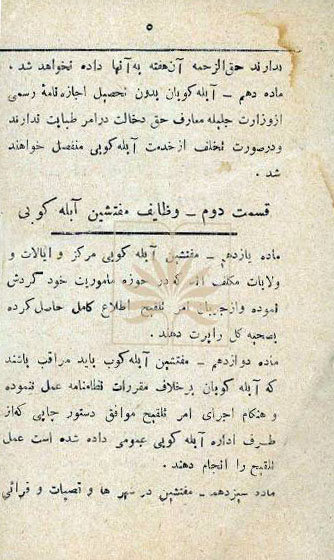 ۵
ندارند حق‌الزحمه آن هفته به آنها داده نخواهد شد .
ماده دهم ــ آبله‌کوبان بدون تحصیل اجازه‌نامهٔ رسمی
از وزارت جلیله معارف حق دخالت در امر طبابت ندارند
و درصورت تخلف از خدمت آبله‌کوبی منفصل خواهند
شد .
قسمت دوم ــ وظایف مفتشین آبله کوبی
ماده یازدهم ــ مفتشین آبله کوبی مرکز و ایالات و
ولایات مکلف اند که در حوزه ماموریت خود گردش
نموده و از جریان امر تلقیح اطلاع کامل حاصل کرده
بصحیه کل راپرت دهند .
ماده دوازدهم ــ مفتشین آبله‌کوب باید مراقب باشند
که آبله کوبان برخلاف مقررات نظامنامه عمل ننموده
و هنگام اجرای امر تلقیح موافق دستور چاپی که از
طرف اداره آبله کوبی عمومی داده شده است عمل
تلقیح را انجام دهند .
ماده سیزدهم ــ مفتشین در شهر ها و قصبات و قرائی